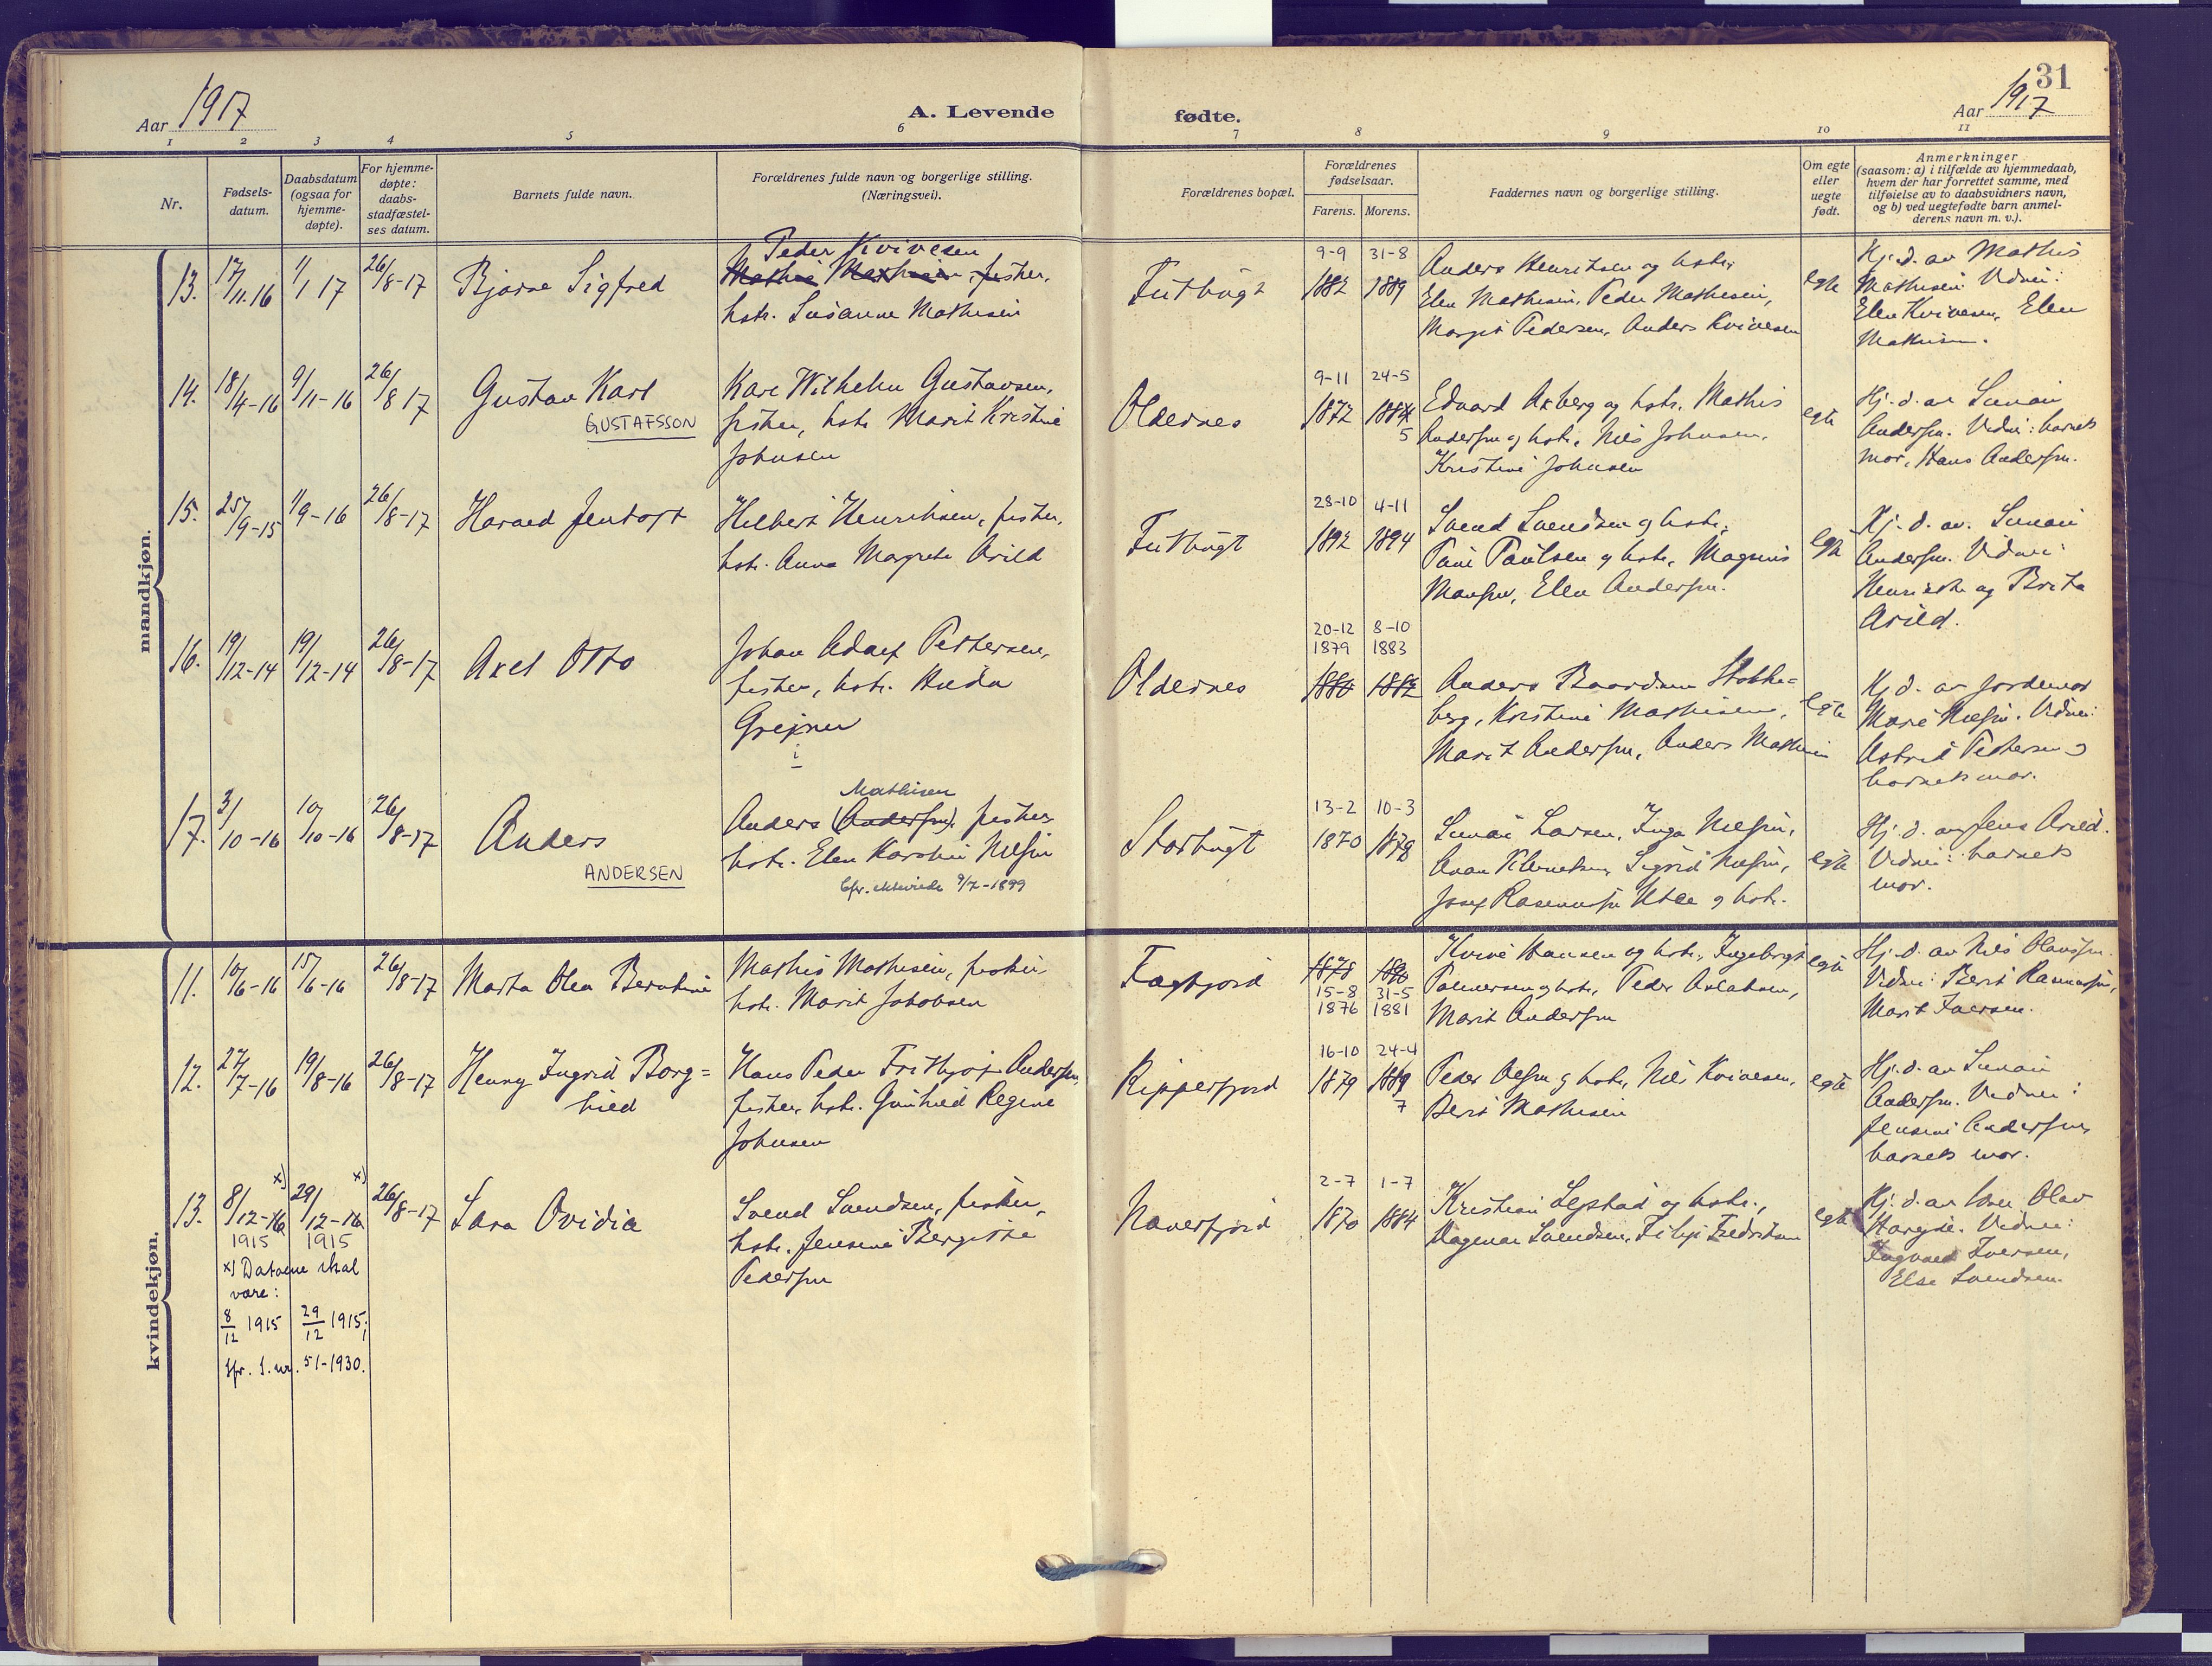 Aar 1917
A. Levende
fødte.
31
Aar 1917
1 2 3 4 5 6 7 8 9 10 11
Nr.
Fødsels-
datum.
Daabsdatum
(ogsaa for
hjemme-
døpte).
For hjemme-
døpte:
daabs-
stadfæstel-
ses datum.
Barnets fulde navn.
Forældrenes fulde navn og borgerlige stilling.
(Næringsvei).
Forældrenes bopæl.
Forældrenes
fødselsaar.
Farens. Morens.
Faddernes navn og borgerlige stilling.
Om egte
eller
uegte
født.
Anmerkninger
(saasom: a) i tilfælde av hjemmedaab,
hvem der har forrettet samme, med
tilføielse av to daabsvidners navn,
og b) ved uegtefødte barn anmel-
derens navn m. v.).
mandkjøn.
13. 17/11.16 1/1 17 26/8-17 Bjarne Sigfred
Peder Kvivesen
fisker,
hstr. Susanne Mathisen
9-9 31-8
1882 1889
Anders Henriksen og hstr.,
Elen Mathisen, Peder Mathisen,
Margit Pedersen, Anders Kvivesen
egte
Hj.d. av Mathis
Mathisen Vidner:
Elen Kvivesen, Elen
Mathisen.
14. 18/4-16 9/11-16 26/8 17 Gustav Karl
GUSTAFSSON
Karl Wilhelm Gustavsen,
fisker, hstr. Marit Kristine
Johnsen
Oldernes
9-11 24-5
1872 1884
5
Edvard Akberg og hstr. Mathis
Andersen og hstr., Nils Johnsen,
Kristine Johnsen
egte
Hj.d. av Simon
Andersen. Vidner: barnets
mor, Hans Andersen.
15. 25/9-15 1/9-16 26/8-17 Harald Jentoft
Hilbert Henriksen, fisker,
hstr. Anna Margrete Arild
28-10 4-11
1892 1894
Svend Svendsen og hstr.,
Paul Paulsen og hstr., Magnus
Monsen, Elen Andersen.
egte
Hj.d. av. Simon
Andersen. Vidner:
Henrikke og Brita
Arild.
16. 19/12-14 19/12-14 26/8-17 Axel Otto
Johan Adolf Pettersen,
fisker, hstr. Hilda
Grejner
i
Oldernes
20-12 8-10
1879 1883
1880 1882
Anders Baardsen Stokke=
berg, Kristine Mathisen,
Marit Andersen, Anders Mathisen
egte
Hj.d. av jordemor
Marie Nilsen. Vidner:
Astrid Pettersen og
barnets mor.
17. 3/10-16 10/10-16 26/8-17 Anders
ANDERSEN
Mathisen
Anders (Andersen), fisker
hstr. Elen Karstine Nilsen
Cfr. ekteviede 9/7-1899
Storbugt
13-2 10-3
1870 1878
Simon Larsen, Inga Nilsen,
Klemetsen, Sigrid Nilsen,
Josef Rasmussen og hstr.
egte
Hj.d. av Jens Arild.
Vidner: barnets
mor.
kvindekjøn.
11. 10/6-16 15/6-16 26/8-17 Marta Olea Berntine
Mathis Mathisen, fisker
hstr. Marit Jakobsen
Fægfjord
1878 1880
15-8 31-5
1876 1881
Kvive Hansen og hstr., Ingeborg
Palmersen og hstr., Peder Aslaksen,
Marit Andersen
egte
Hj.d. av Nils Olaussen.
Vidner: Berit Rasmussen,
Marit Iversen.
12. 27/7-16 19/8-16 26/8-17 Henny Ingrid Borg=
hild
Hans Peder Frithjof Andersen,
fisker, hstr. Gunhild Regine
Johnsen
Repperfjord
16-10 24-4
1879 1889
7
Peder Olsen og hstr., Nils Kvivesen,
Berit Mathisen
egte
Hj.d. av Simon
Andersen. Vidner:
Jensine Andersen,
barnets mor.
13. 8/12-16 x) 29/12-16 x) 26/8-17 Sara Ovidia
1915 1915
x) Datoene skal
være:
8/12 1915 29/12 1915;
jfr. S.nr. 51-1930.
Svend Svendsen, fisker,
hstr. Jensine Bergitte
Pedersen
Naverfjord
2-7 1-7
1870 1884
Kristian Legstad og hstr.,
Dagmar Svendsen, Filip Fredriksen
egte
Hj.d. av Olav
Vidner:
Ingvald Iversen,
Else Svendsen.